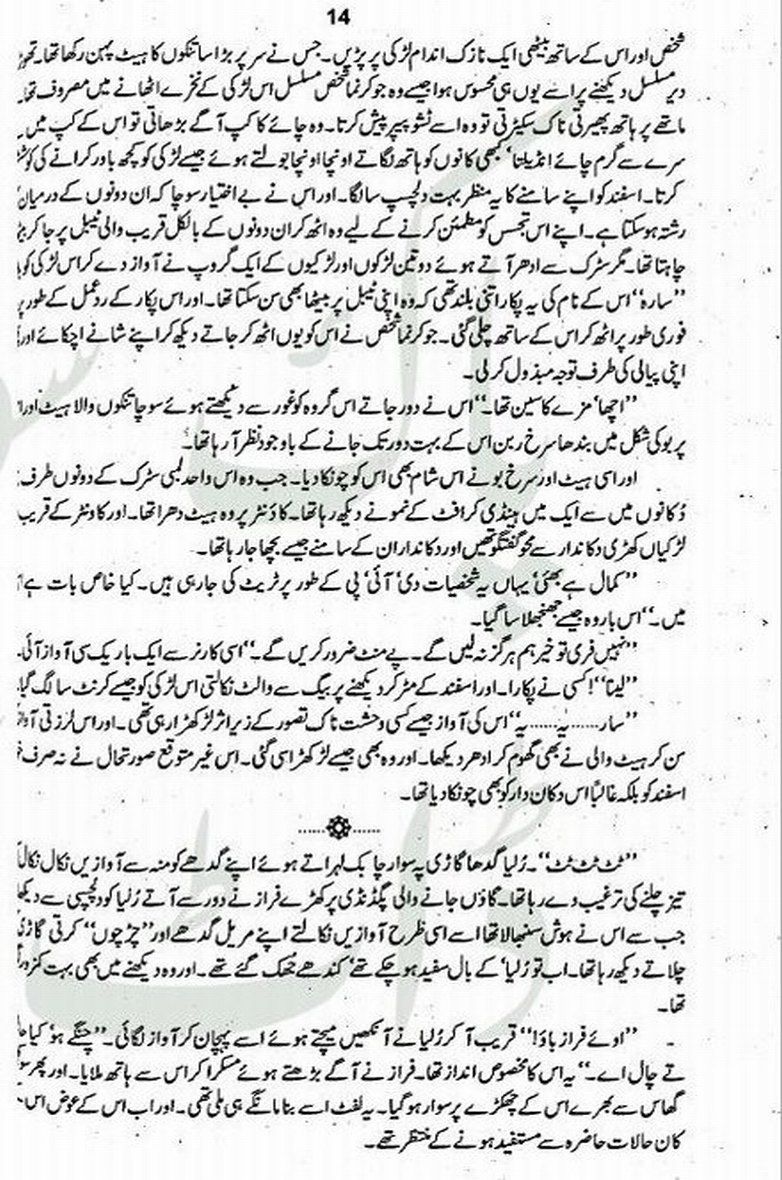 14
شخص اور اس کے ساتھ بیٹھی ایک نازک اندام لڑکی پر پڑیں۔ جس نے سر پر بڑا سا تنکوں کا ہیٹ پہن رکھا تھا۔
دیر مسلسل دیکھنے پر اسے یوں ہی محسوس ہوا جیسے وہ جوکر نما شخص مسلسل اس لڑکی کے نخرے اٹھانے میں مصروف تھا۔
ماتھے پر ہاتھ پھیرتی ناک سکیڑتی تو وہ اسے ٹشو پیپر پیش کرتا۔ وہ چائے کا کپ آگے بڑھاتی تو اس کے کپ میں
سرے سے گرم چائے انڈیلتا‘ کبھی کانوں کو ہاتھ لگاتے اونچا اونچا بولتے ہوئے جیسے لڑکی کو کچھ باور کرانے کی
کرتا۔ اسفند کو اپنے سامنے کا یہ منظر بہت دلچسپ سا لگا۔ اور اس نے بے اختیار سوچا کہ ان دونوں کے درمیان
رشتہ ہو سکتا ہے۔ اپنے اس تجسس کو مطمئن کرنے کے لیے وہ اٹھ کر ان دونوں کے بالکل قریب والی ٹیبل پر جا کر
چاہتا تھا۔ مگر سڑک سے ادھر آتے ہوئے دو تین لڑکوں اور لڑکیوں کے ایک گروپ نے آواز دے کر اس لڑکی کو
’’سارہ‘‘ اس کے نام کی یہ پکار اتنی بلند تھی کہ وہ اپنی ٹیبل پر بیٹھا بھی سن سکتا تھا۔ اور اس پکار کے ردعمل کے طور پر
فوری طور پر اٹھ کر اس کے ساتھ چلی گئی۔ جوکر نما شخص نے اس کو یوں اٹھ کر جاتے دیکھ کر اپنے شانے اچکائے اور
اپنی پیالی کی طرف توجہ مبذول کر لی۔
’’اچھا‘ مزے کا سین تھا۔‘‘ اس نے دور جاتے اس گروہ کو غور سے دیکھتے ہوئے سوچا تنکوں والا ہیٹ اور
پر بو کی شکل میں بندھا سرخ ربن اس کے بہت دور تک جانے کے باوجود نظر آ رہا تھا۔
اور اسی ہیٹ اور سرخ بو نے اس شام بھی اس کو چونکا دیا۔ جب وہ اس واحد لمبی سڑک کے دونوں طرف
دُکانوں میں سے ایک میں ہینڈی کرافٹ کے نمونے دیکھ رہا تھا۔ کاؤنٹر پر وہ ہیٹ دھرا تھا۔ اور کاؤنٹر کے قریب
لڑکیاں کھڑی دکاندار سے محو گفتگو تھیں اور دکانداران کے سامنے جیسے بچھا جا رہا تھا۔
’’کمال ہے بھئی‘ یہاں یہ شخصیات وی‘ آئی‘ پی کے طور پر ٹریٹ کی جا رہی ہیں۔ کیا خاص بات ہے
میں۔‘‘ اس بار وہ جیسے جھنجھلا سا گیا۔
’’نہیں فری تو خیر ہم ہرگز نہ لیں گے۔ پے منٹ ضرور کریں گے۔‘‘ اسی کارنر سے ایک باریک سی آواز آئی۔
’’لینا‘‘! کسی نے پکارا۔ اور اسفند کے مڑ کر دیکھنے پر بیگ سے والٹ نکالتی اس لڑکی کو جیسے کرنٹ سا لگ گیا۔
’’سار......یہ......یہ‘‘ اس کی آواز جیسے کسی وحشت ناک تصور کے زیر اثر لڑکھڑا رہی تھی۔ اور اس لرزتی آواز
سن کر ہیٹ والی نے بھی گھوم کر ادھر دیکھا۔ اور وہ بھی جیسے لڑکھڑا سی گئی۔ اس غیر متوقع صورتحال نے نہ صرف
اسفند کو بلکہ غالباً اس دکان دار کو بھی چونکا دیا تھا۔
’’ٹٹ ٹٹ ٹٹ‘‘۔ رُلیا گدھا گاڑی پہ سوار چابک لہراتے ہوئے اپنے گدھے کو منہ سے آوازیں نکال نکال
تیز چلنے کی ترغیب دے رہا تھا۔ گاؤں جانے والی پگڈنڈی پر کھڑے فراز نے دور سے آتے رُلیا کو دلچسپی سے دیکھا
جب سے اس نے ہوش سنبھالا تھا اسے اسی طرح آوازیں نکالتے اپنے مریل گدھے اور ’’چڑچوں‘‘ کرتی گاڑی
چلاتے دیکھ رہا تھا۔ اب تو رُلیا‘ کے بال سفید ہو چکے تھے‘ کندھے جھک گئے تھے۔ اور وہ دیکھنے میں بھی بہت کمزور
تھا۔
’’اوئے فراز باؤ!‘‘ قریب آ کر رُلیا نے آنکھیں میچتے ہوئے اسے پہچان کر آواز لگائی۔ ’’چنگے ہو‘ کیا
تے چال اے۔‘‘ یہ اس کا مخصوص انداز تھا۔ فراز نے آگے بڑھتے ہوئے مسکرا کر اس سے ہاتھ ملایا۔ اور پھر
گھاس سے بھرے اس کے چھکڑے پر سوار ہو گیا۔ یہ لفٹ اسے بنا مانگے ہی ملی تھی۔ اور اب اس کے عوض اس
کان حالات حاضرہ سے مستفید ہونے کے منتظر تھے۔